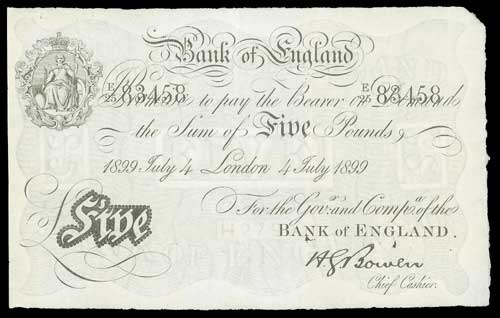 Bank of England
E/25 83458 E/25 83458
to pay the Bearer on Demand
the Sum of Five Pounds
1899 July 4 London 4 July 1899
For the Govr. and Compa. of the
Five BANK of ENGLAND.
H G Bowen
Chief Cashier.